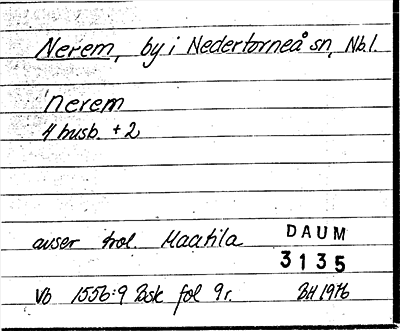 Nerem, by i Nedertorneå sn, Nb.l.
'nerem
4 husb. + 2
avser trol. Maatila
DAUM
3135
Vb 1556:9 Bsk fol 9r.
BH 1976